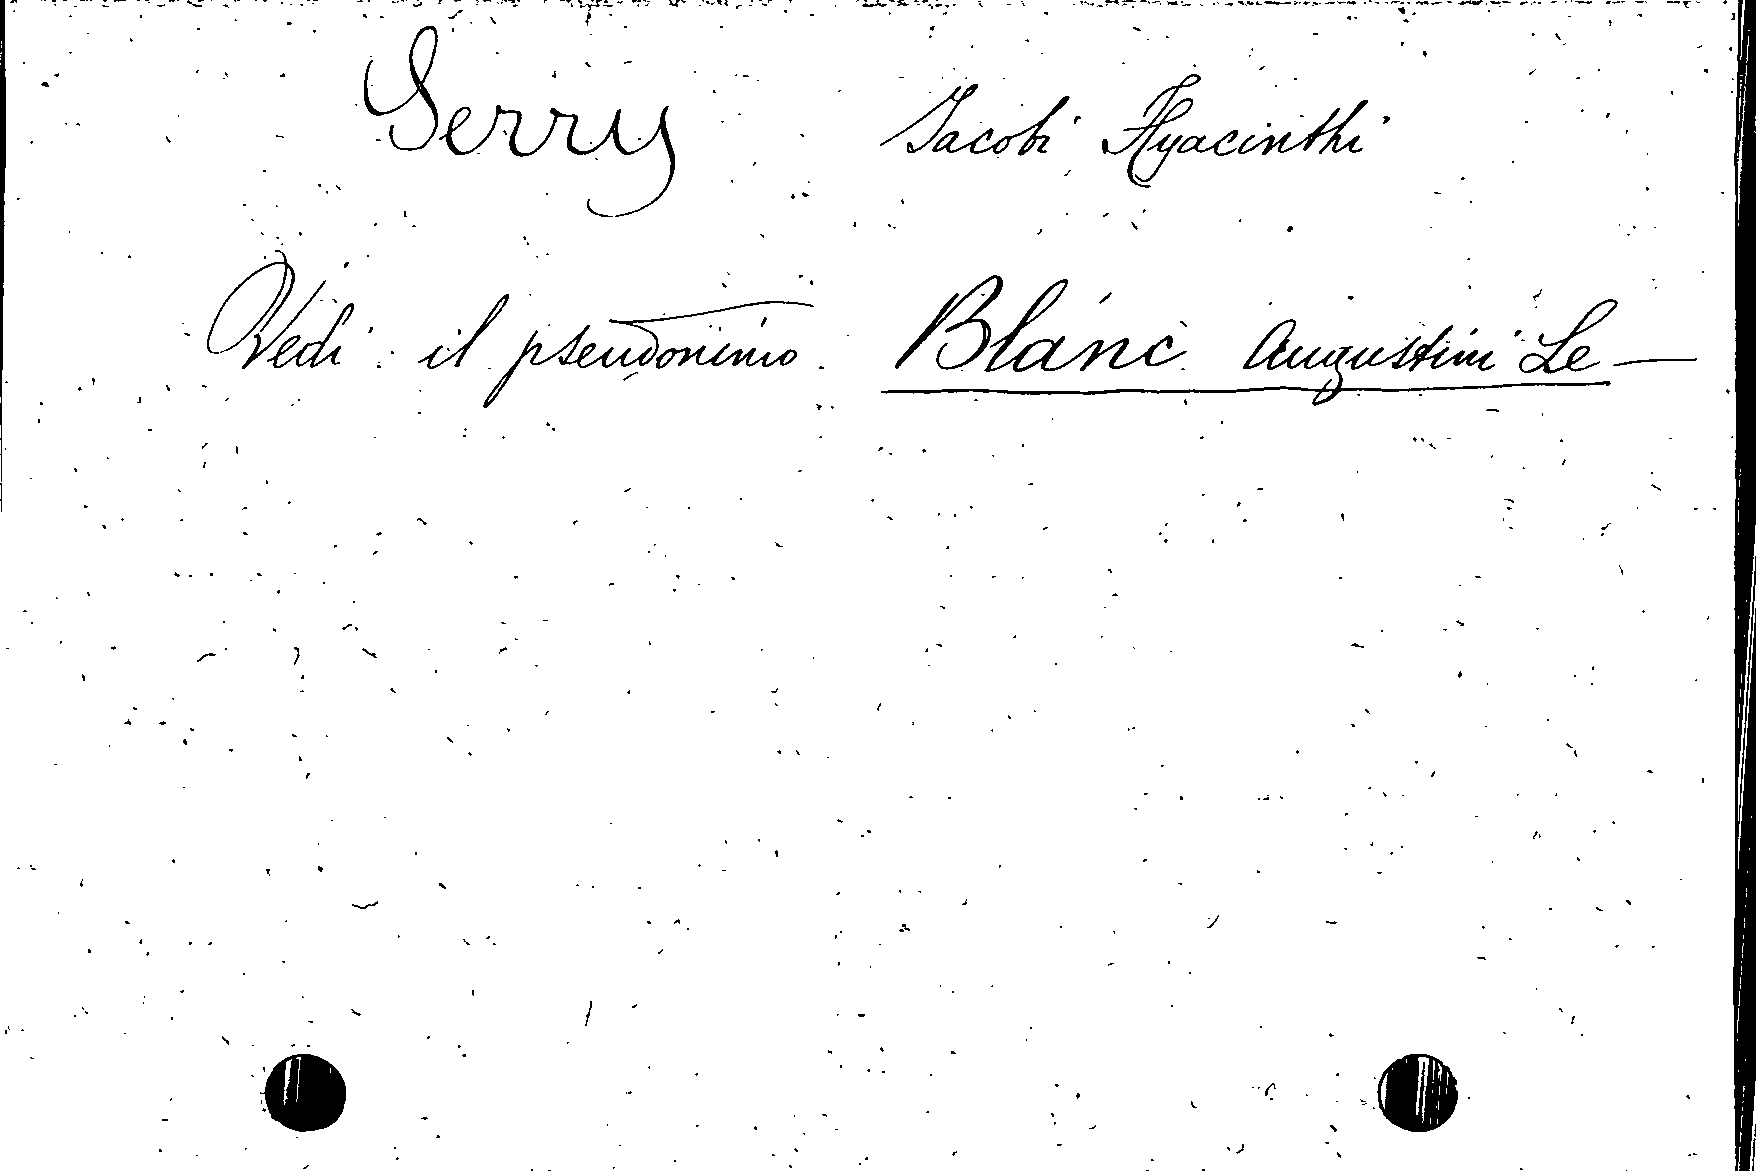 Serry Jacobi Hyacinthi
Vedi il pseudonimo Blanc Augustini Le —